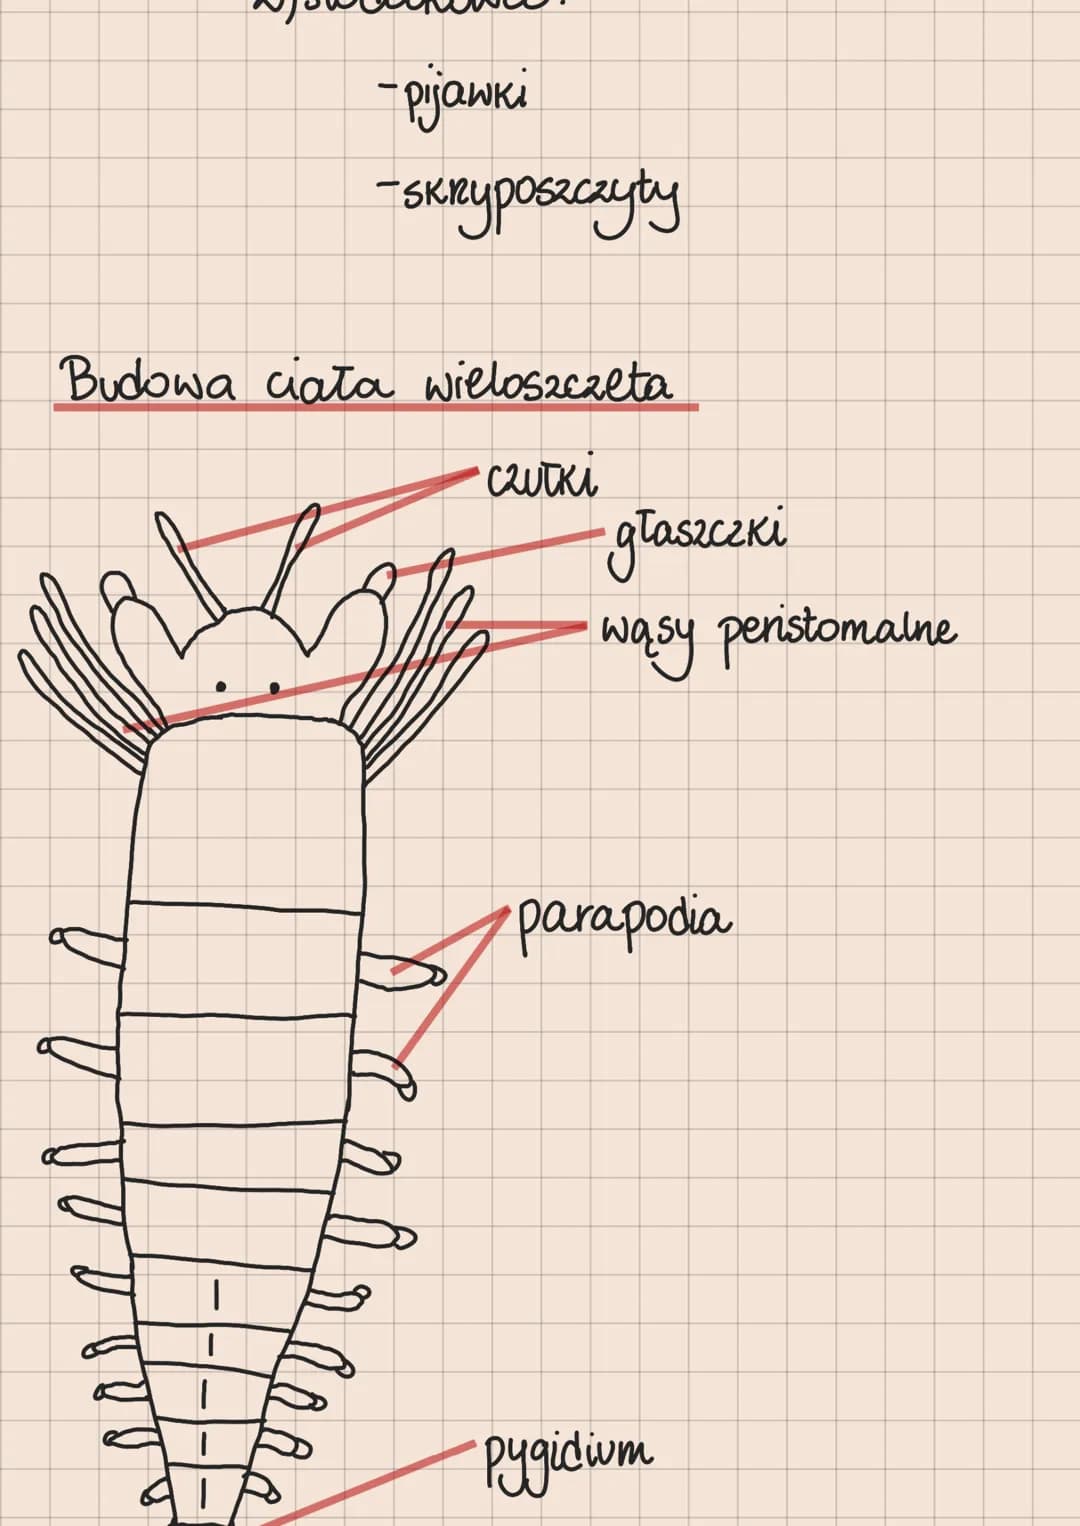 -pijawki
-skryposzczyty
Budowa ciała wieloszczeta
czułki
głaszczki
wąsy peristomalne
parapodia
pygidium